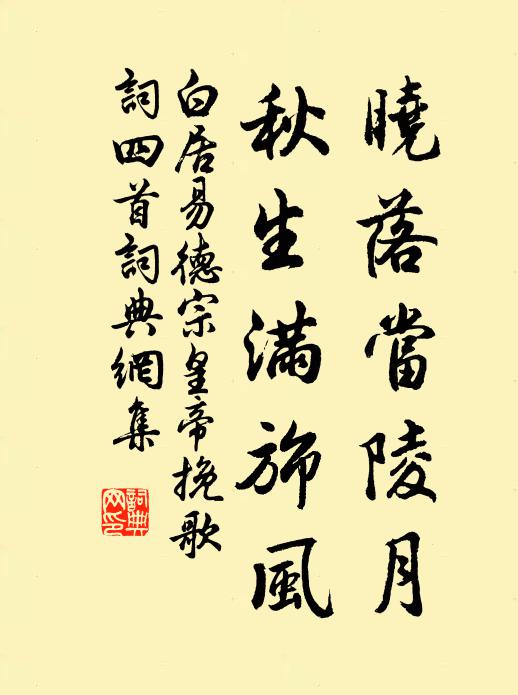 曉落當陵月
秋生滿旆風
白居易德宗皇帝挽歌
詞四首詞典網集
詞典
网印